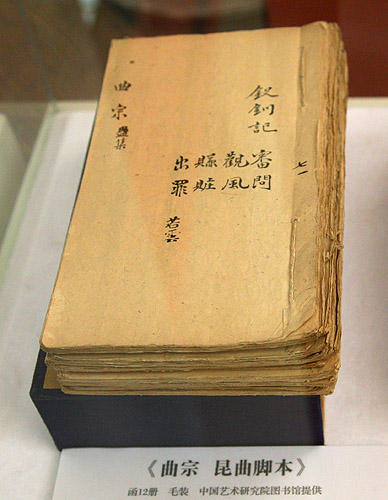 釵釧記
審問
觀風
賺贓
出罪
若雲
曲宗 集
《曲宗 昆曲脚本》
函12册 毛装 中国艺术研究院图书馆提供